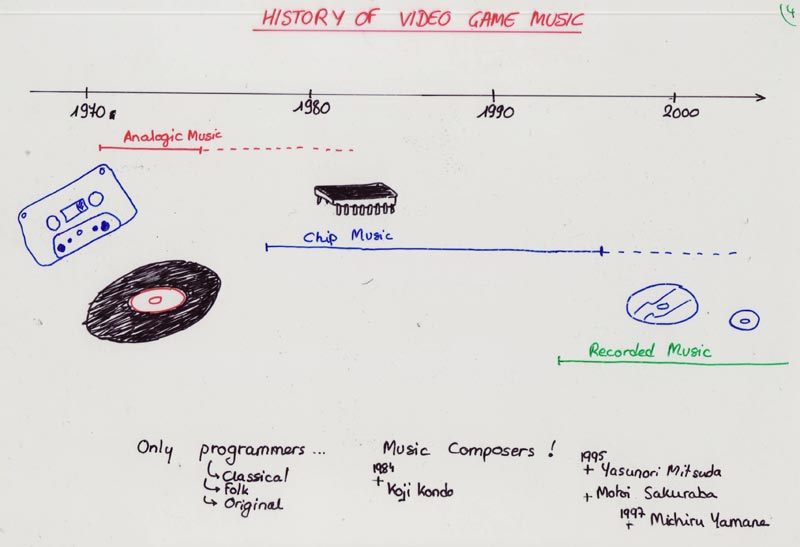 HISTORY OF VIDEO GAME MUSIC
4
1970
1980
1990
2000
Analogic Music
Chip Music
Recorded Music
Only programmers...
Classical
Folk
Original
Music Composers!
1984
+ Koji Kondo
1995
+ Yasunori Mitsuda
+ Motoi Sakuraba
1997
+ Michiru Yamane